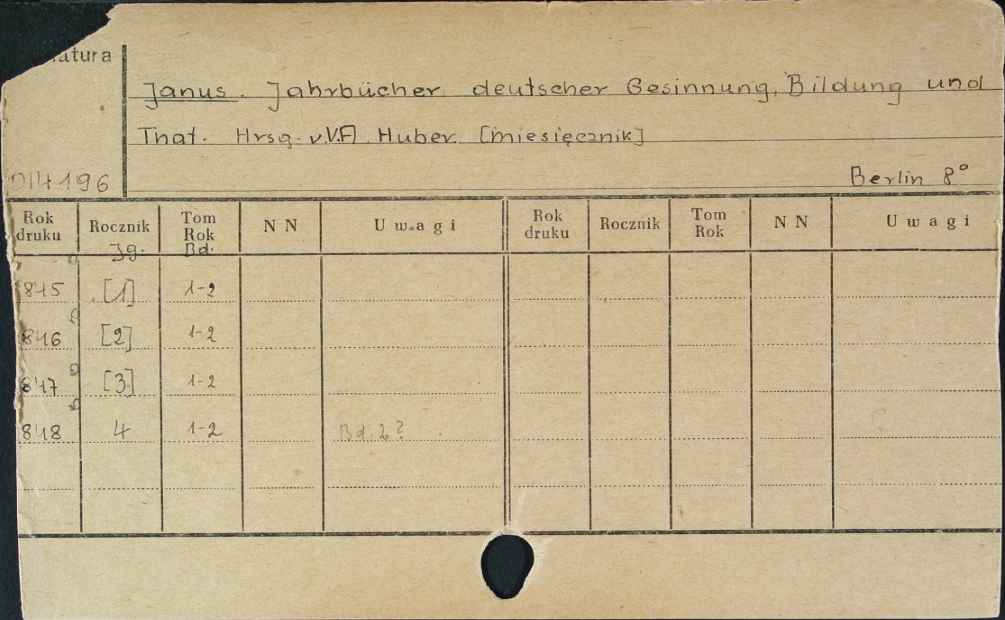 atura
Janus. Jahrbücher deutscher Gesinnung, Bildung und
That. Hrsg. v.V.A. Huber [miesięcznik]
4196 Berlin 8°
Rok druku Rocznik Tom Rok N N Uwagi Rok druku Rocznik Tom Rok N N Uwagi
Jg. Bd.
845 [1] 1-2
846 [2] 1-2
847 [3] 1-2
848 4 1-2 Bd. 2?